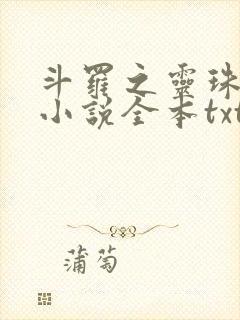 斗羅之靈珠
小說全本txt
蒲萄